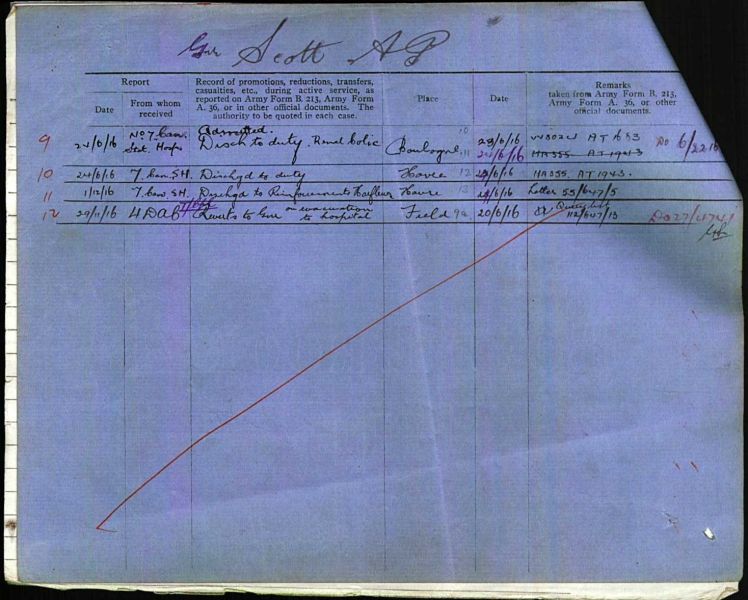 Gnr Scott A G
Report
Record of promotions, reductions, transfers, casualties, etc., during active service, as reported on Army Form B. 213, Army Form A. 36, or in other official documents. The authority to be quoted in each case.
Place
Date
Remarks
taken from Army Form B. 213, Army Form A. 36, or other official documents.
Date
From whom received
9 24/6/16 No 7 Can. Stat. Hosp Admitted. Disch to duty. Renal Colic Boulogne 10 23/6/16 W3024 AT 683 DO 6/22 16
11 24/6/16 HA355. AT 1943
10 24/6/16 7. Can. S.H. Dischgd to duty Havre 12 HA355. AT 1943.
11 1/12/16 7. Can. S.H. Dischgd to Reinforcements Harfleur Havre 13 Letter 55/647/5
12 29/11/16 4 DAC Reverts to Gnr on evacuation to hospital Field 9a 20/6/16 112/647/13 DO 27/